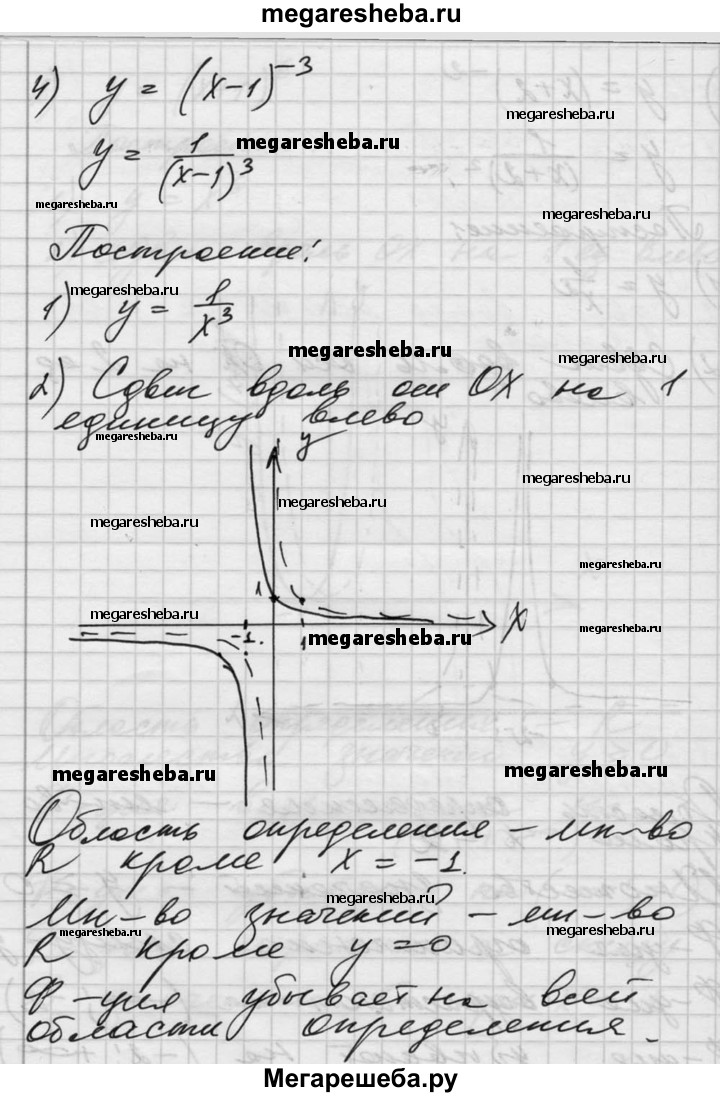 megaresheba.ru
4) y = (x-1)^-3
megaresheba.ru
y = 1/(x-1)^3
megaresheba.ru
megaresheba.ru
megaresheba.ru
Построение!
megaresheba.ru
1) y = 1/x^3
megaresheba.ru
megaresheba.ru
2) Сдвиг вдоль оси OX на 1
единицу влево
megaresheba.ru
y
megaresheba.ru
megaresheba.ru
megaresheba.ru
megaresheba.ru
1
megaresheba.ru
megaresheba.ru
-1
1
megaresheba.ru
X
megaresheba.ru
megaresheba.ru
Область определения - мн-во
R кроме x = -1.
megaresheba.ru
Мн-во значений - мн-во
megaresheba.ru
megaresheba.ru
R кроме y=0
Ф-ция убывает на всей
области определения.
Мегарешеба.ру